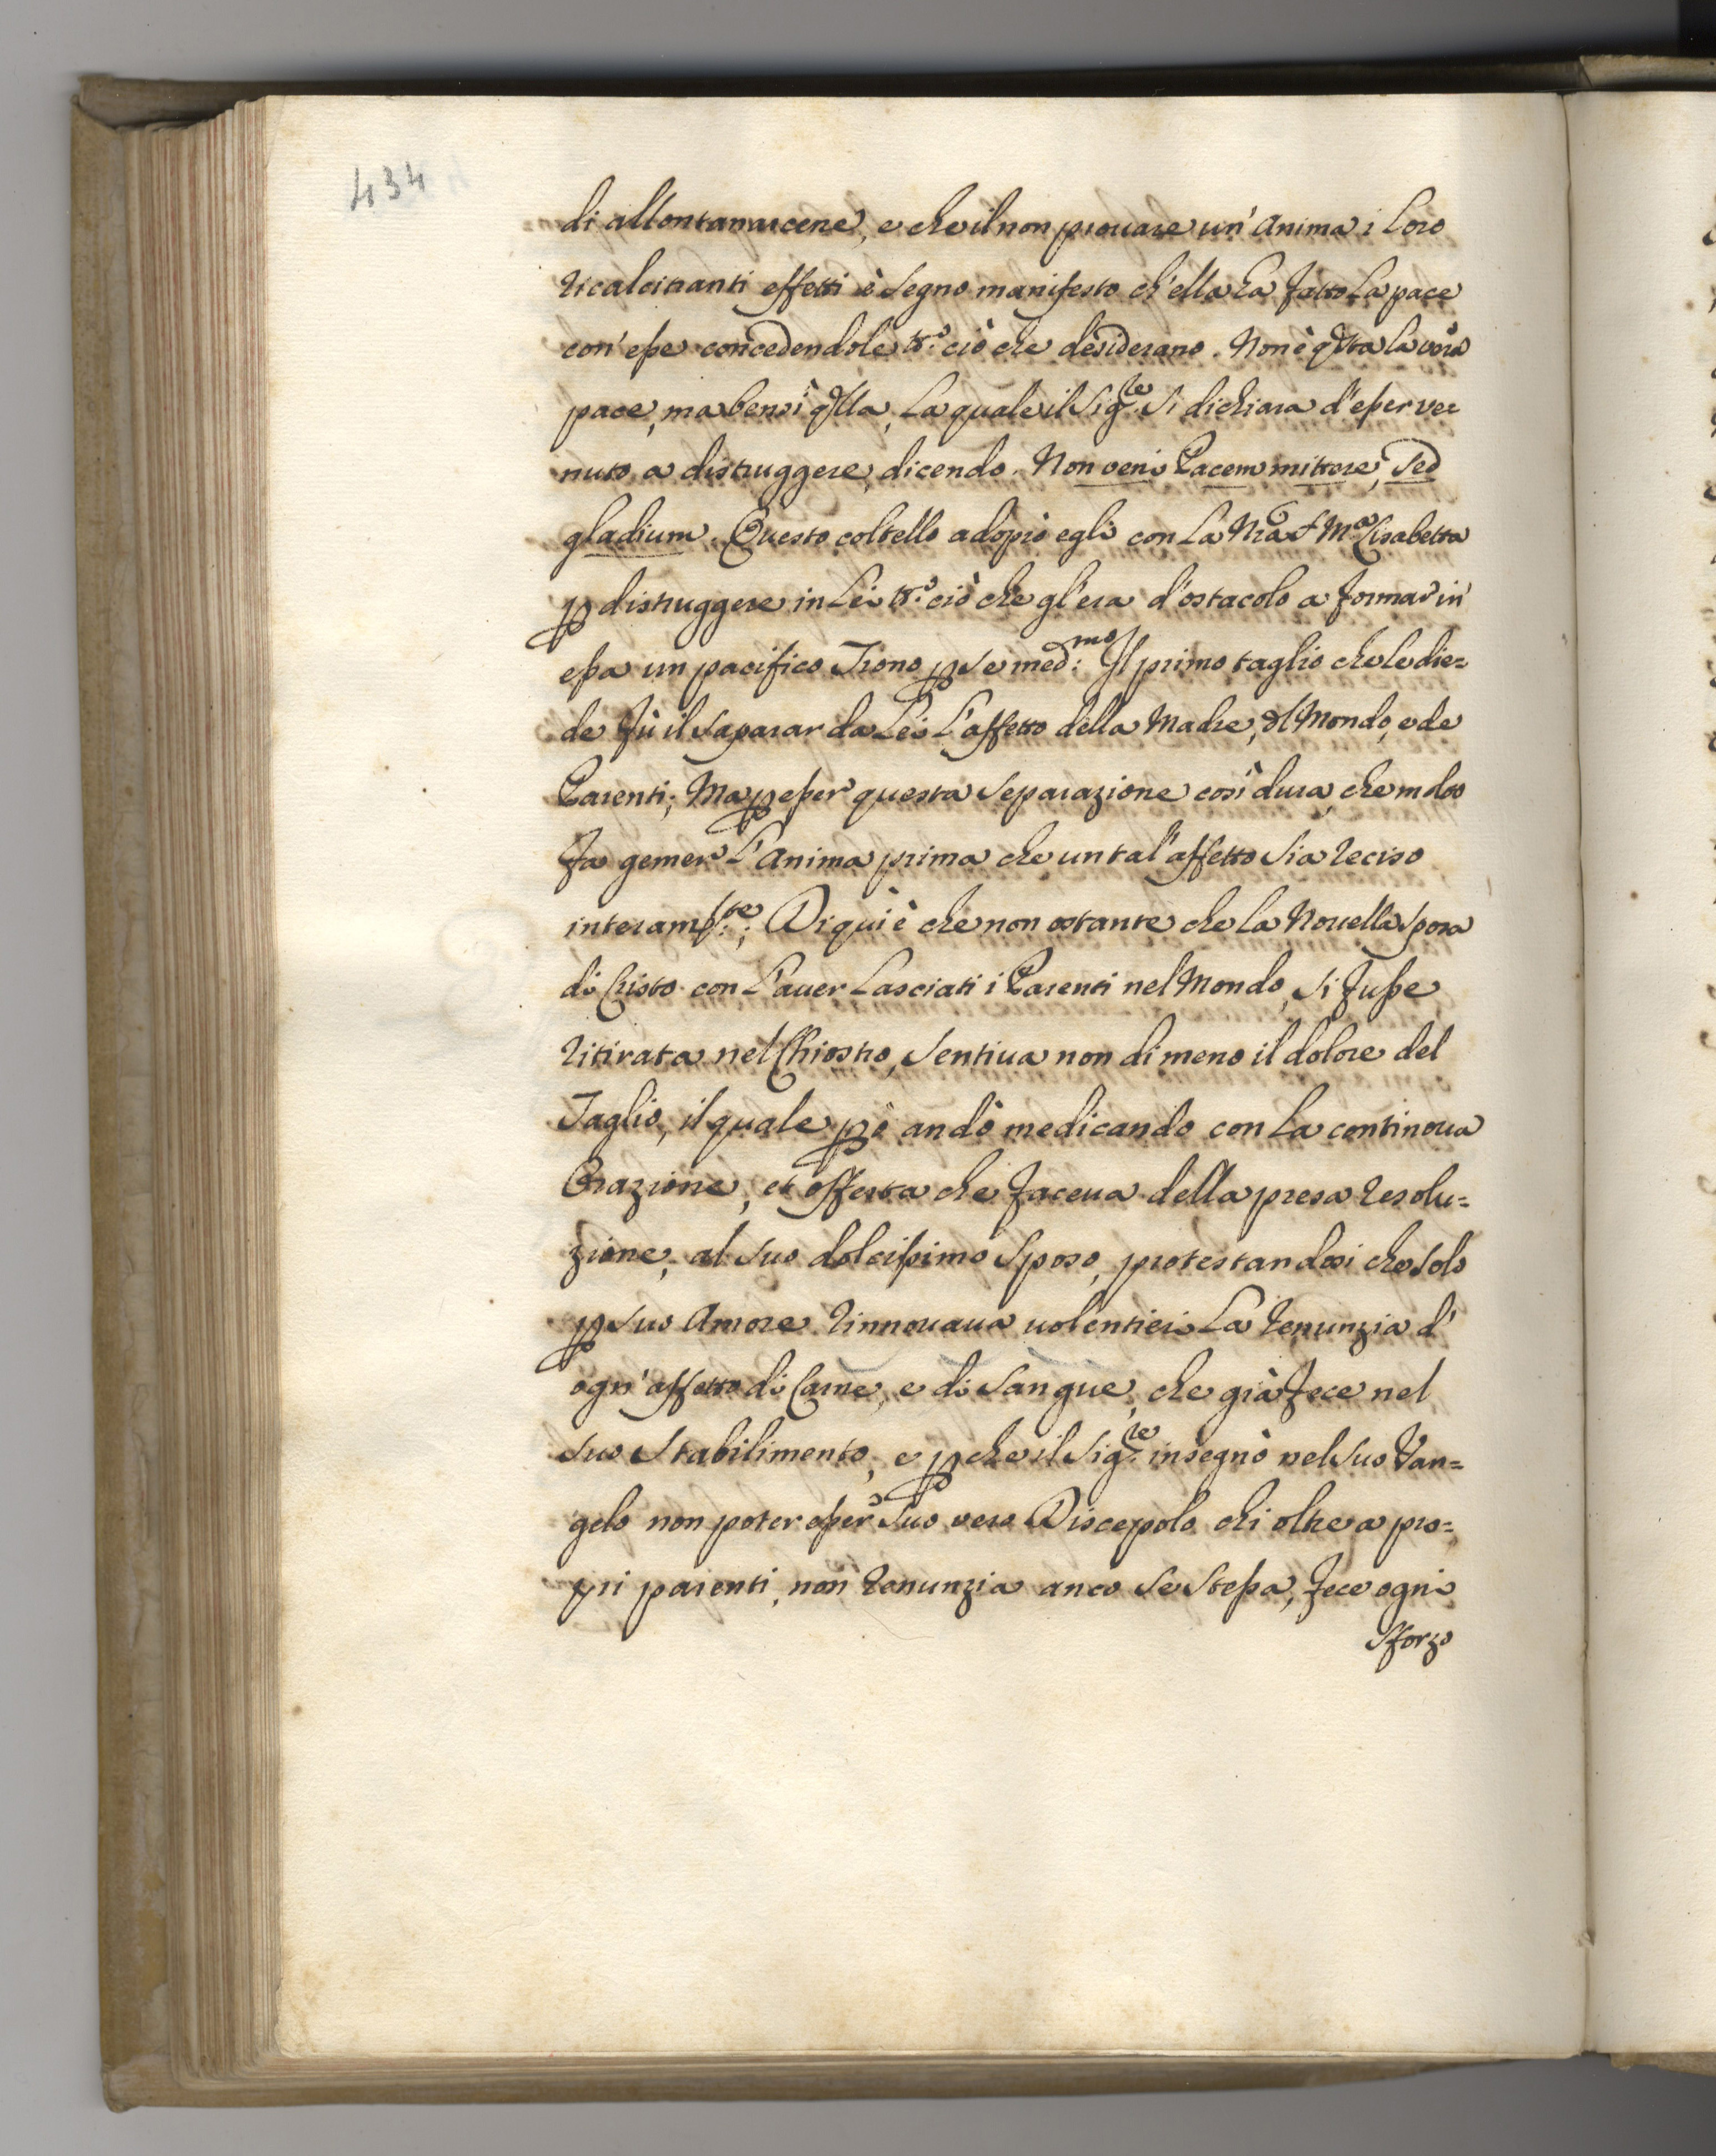 434
di allontanarcene, e che il non prouare un' Anima i Loro
ricalcitranti effetti è segno manifesto ch'ella ha fatto La pace
con' esse concedendole tt.º ciò che desiderano. Non è qsta la uera
pace, ma bensì qlla, La quale il Sig.re si dichiara d'esser ve=
nuto a distruggere, dicendo. Non veni Pacem mittere, sed
gladium. Questo coltello adoprò egli con La Nrã S. M.ª Lisabetta
p distruggere in Lei tt.º ciò che gl'era d'ostacolo a formar' in'
essa un pacifico Trono p se med:mo Il primo taglio che le die=
de fù il saparar da Lei L'affetto della Madre, dl Mondo, e de
Parenti; Ma p esser' questa separazione così dura, che molto
fa gemer' L'Anima prima che un tal' affetto sia reciso
interam.te; Di qui è che non ostante che la Nouella Sposa
di Cristo con L'auer Lasciati i Parenti nel Mondo, si fusse
ritirata nel Chiostro, sentiua non di meno il dolore del
Taglio, il quale pò andò medicando con La continoua
Orazione, et offerta che faceua della presa resolu=
zione, al suo dolcissimo Sposo, protestandosi che solo
p suo Amore rinnouaua uolentieri La renunzia d'
ogn' affetto di Carne, e di sangue, che già fece nel
suo stabilimento, e pche il Sig.re insegnò nel suo Van=
gelo non poter esser' suo vero Discepolo chi oltre a pro=
pri parenti, non renunzia anco se stessa, fece ogni
sforzo